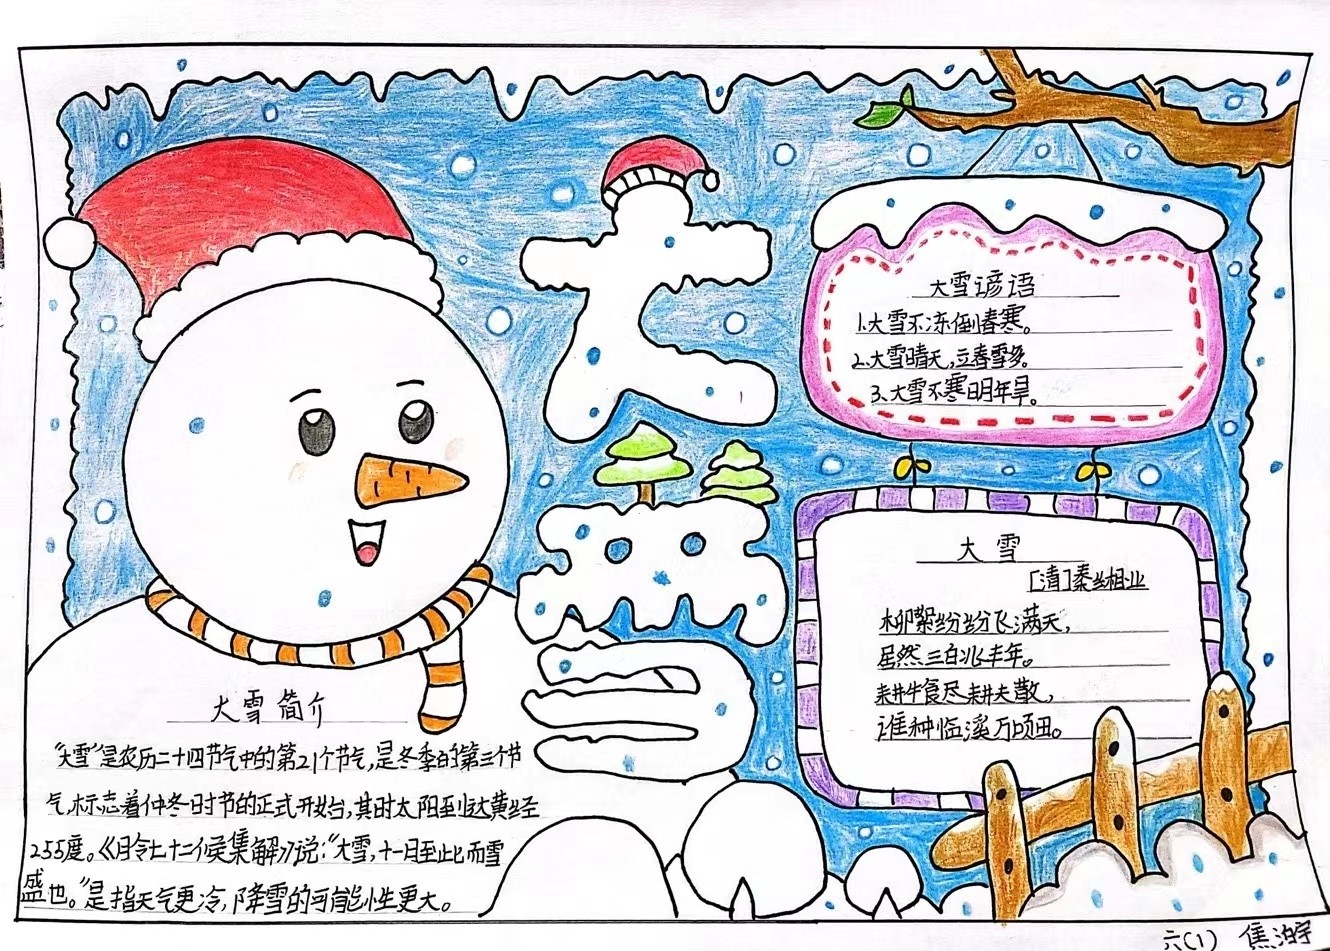 大雪
大雪谚语
1.大雪不冻倒春寒。
2.大雪晴天,立春雪多。
3.大雪不寒明年旱。
大雪
[清]秦兰相业
柳絮纷纷飞满天,
居然三白兆丰年。
耕牛食尽耕夫散,
谁种临溪万顷田。
大雪简介
“大雪”是农历二十四节气中的第21个节气,是冬季的第三个节
气,标志着仲冬时节的正式开始,其时太阳到达黄经
255度。《月令七十二候集解》说:“大雪,十一月至此而雪
盛也。”是指天气更冷,降雪的可能性更大。
六(1) 焦